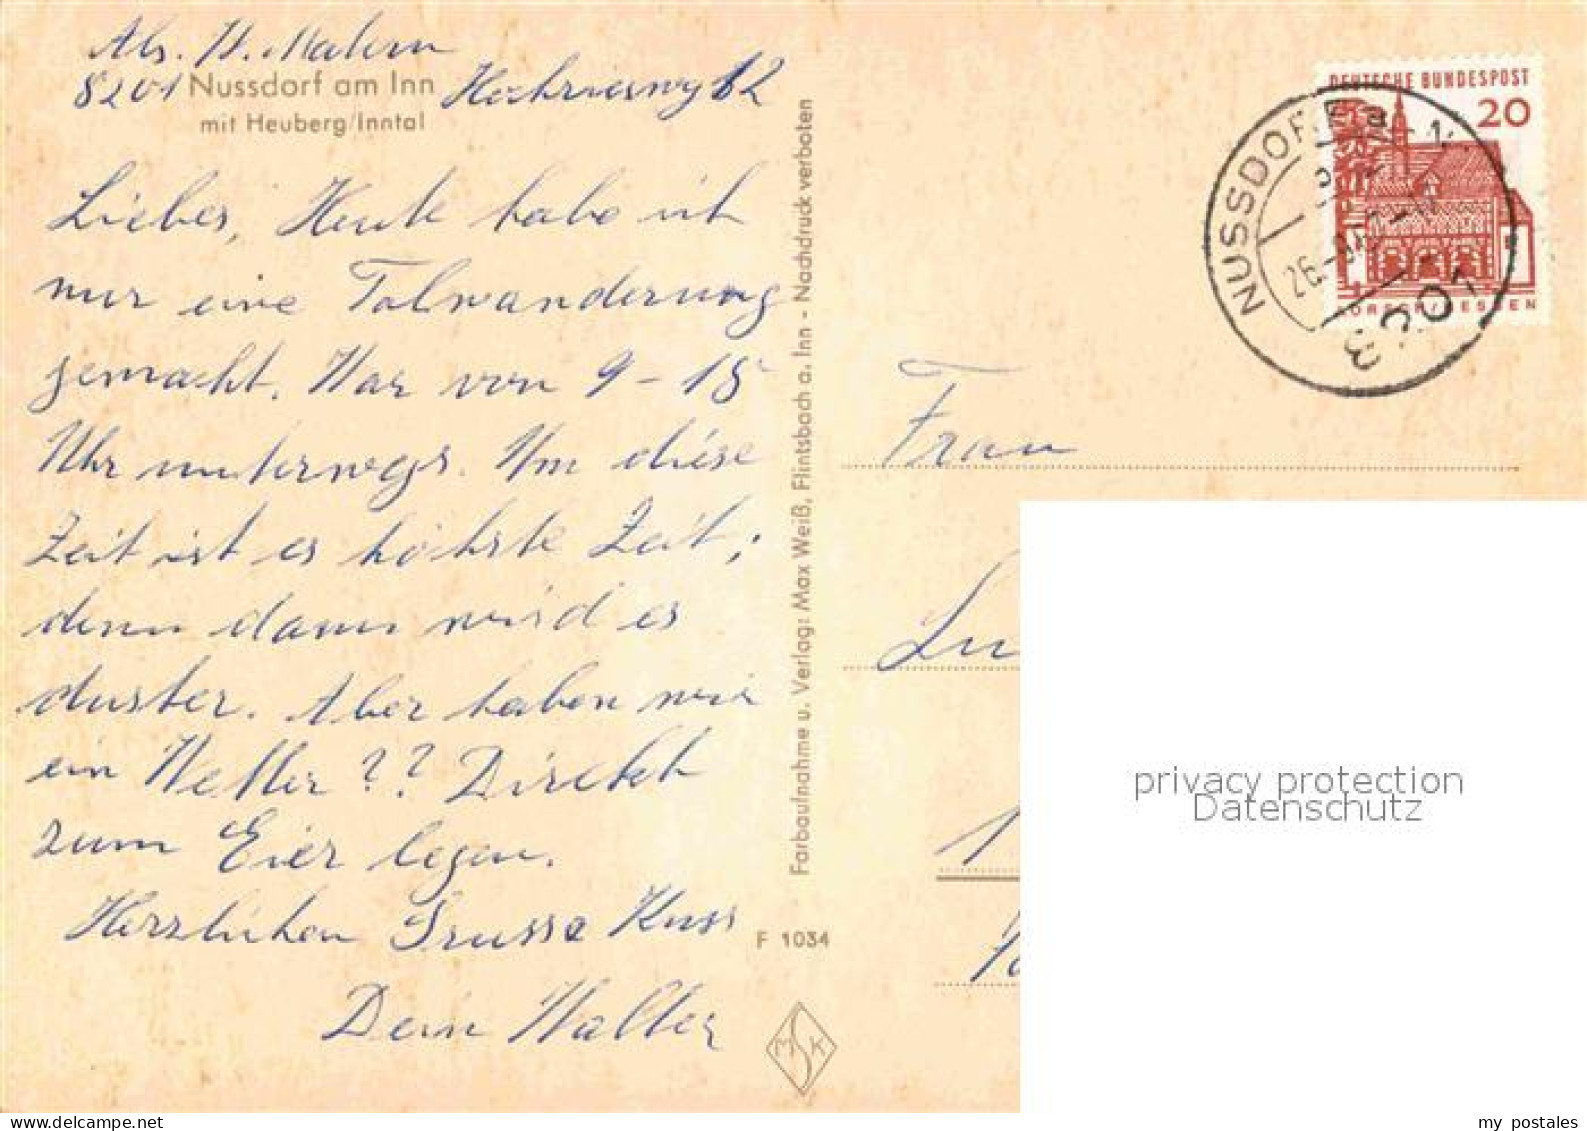 Abs. W. Malern
8201 Nussdorf am Inn Hochriesweg 12
mit Heuberg/Inntal
Liebes, Heute habe ich
nur eine Talwanderung
gemacht. War von 9-15
Uhr unterwegs. Um diese
Zeit ist es höchste Zeit,
denn dann wird es
duster. Aber haben wir
ein Wetter ?? Direkt
zum Eier legen.
Herzlichen Grusse Kuss
Dein Walter
Farbaufnahme u. Verlag: Max Weiß, Flintsbach a. Inn - Nachdruck verboten
F 1034
MSK
DEUTSCHE BUNDESPOST
20
LORSCH/HESSEN
NUSSDORF
8201
Frau
privacy protection
Datenschutz
my postales